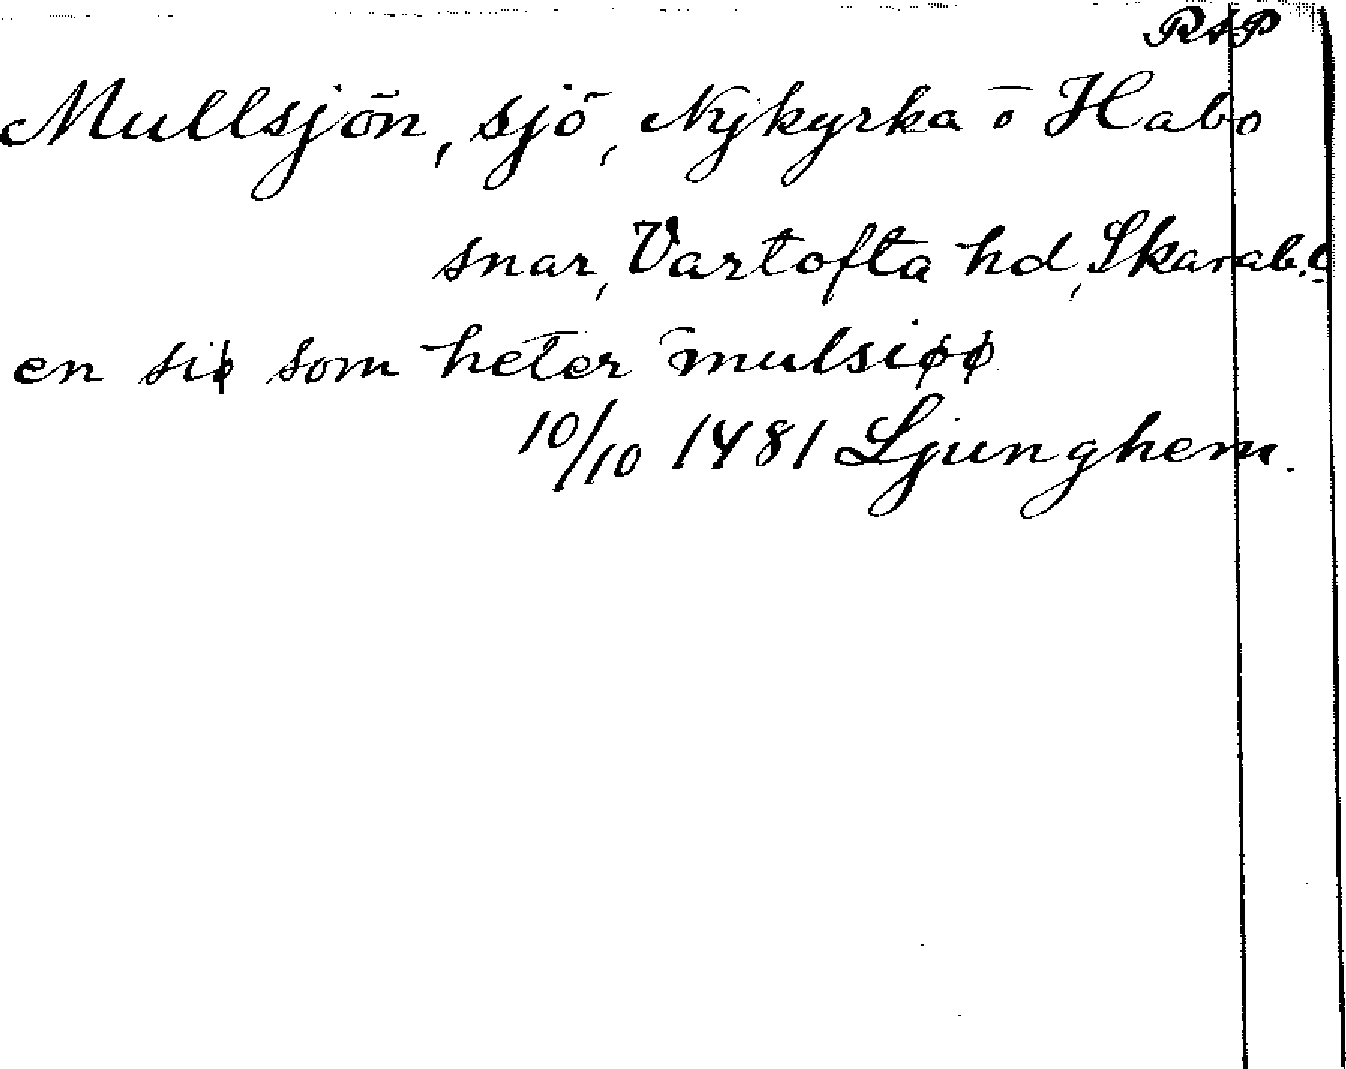 RAP
Mullsjön, sjö, Nykyrka o Habo
snar, Vartofta hd, Skarab.
en siø som heter mulsiøø
10/10 1481 Ljunghem.